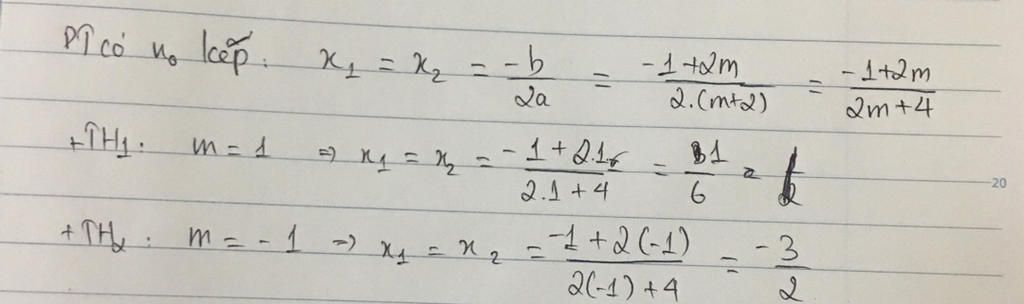 PT có n₀ kép: x₁ = x₂ = -b/2a = -1+2m/2.(m+2) = -1+2m/2m+4
+TH1: m = 1 => x₁ = x₂ = -1+2.1/2.1+4 = 1/6
+TH2: m = -1 => x₁ = x₂ = -1+2(-1)/2(-1)+4 = -3/2
20